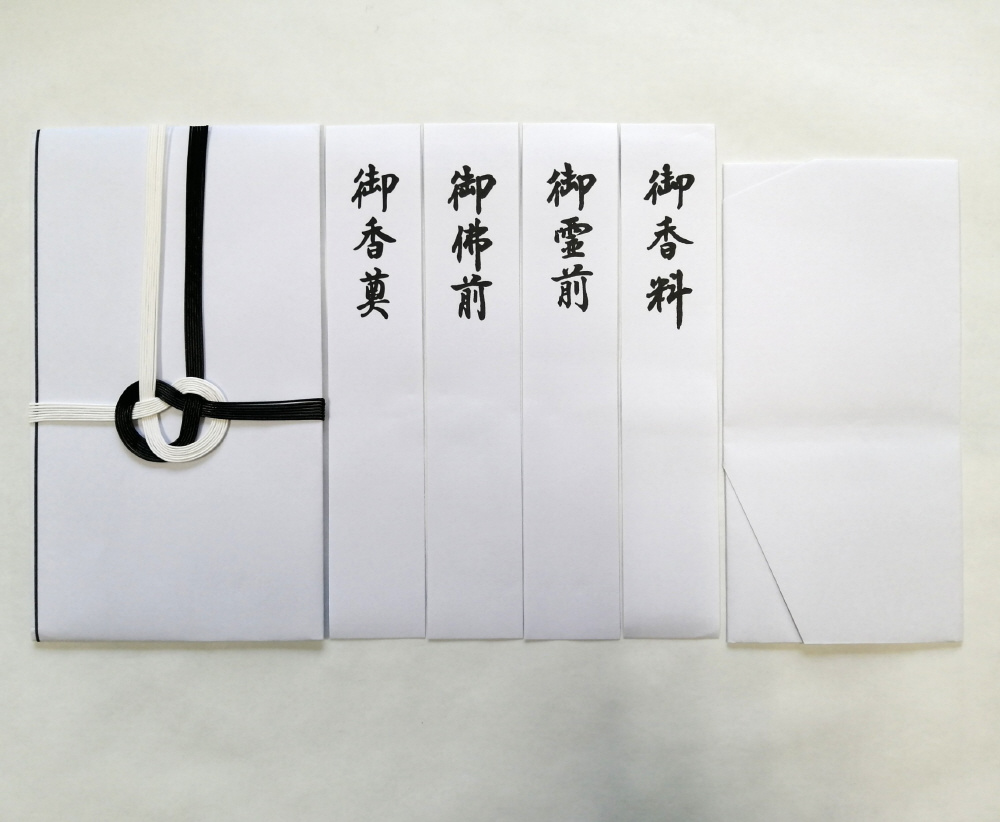 御香奠
御佛前
御霊前
御香料